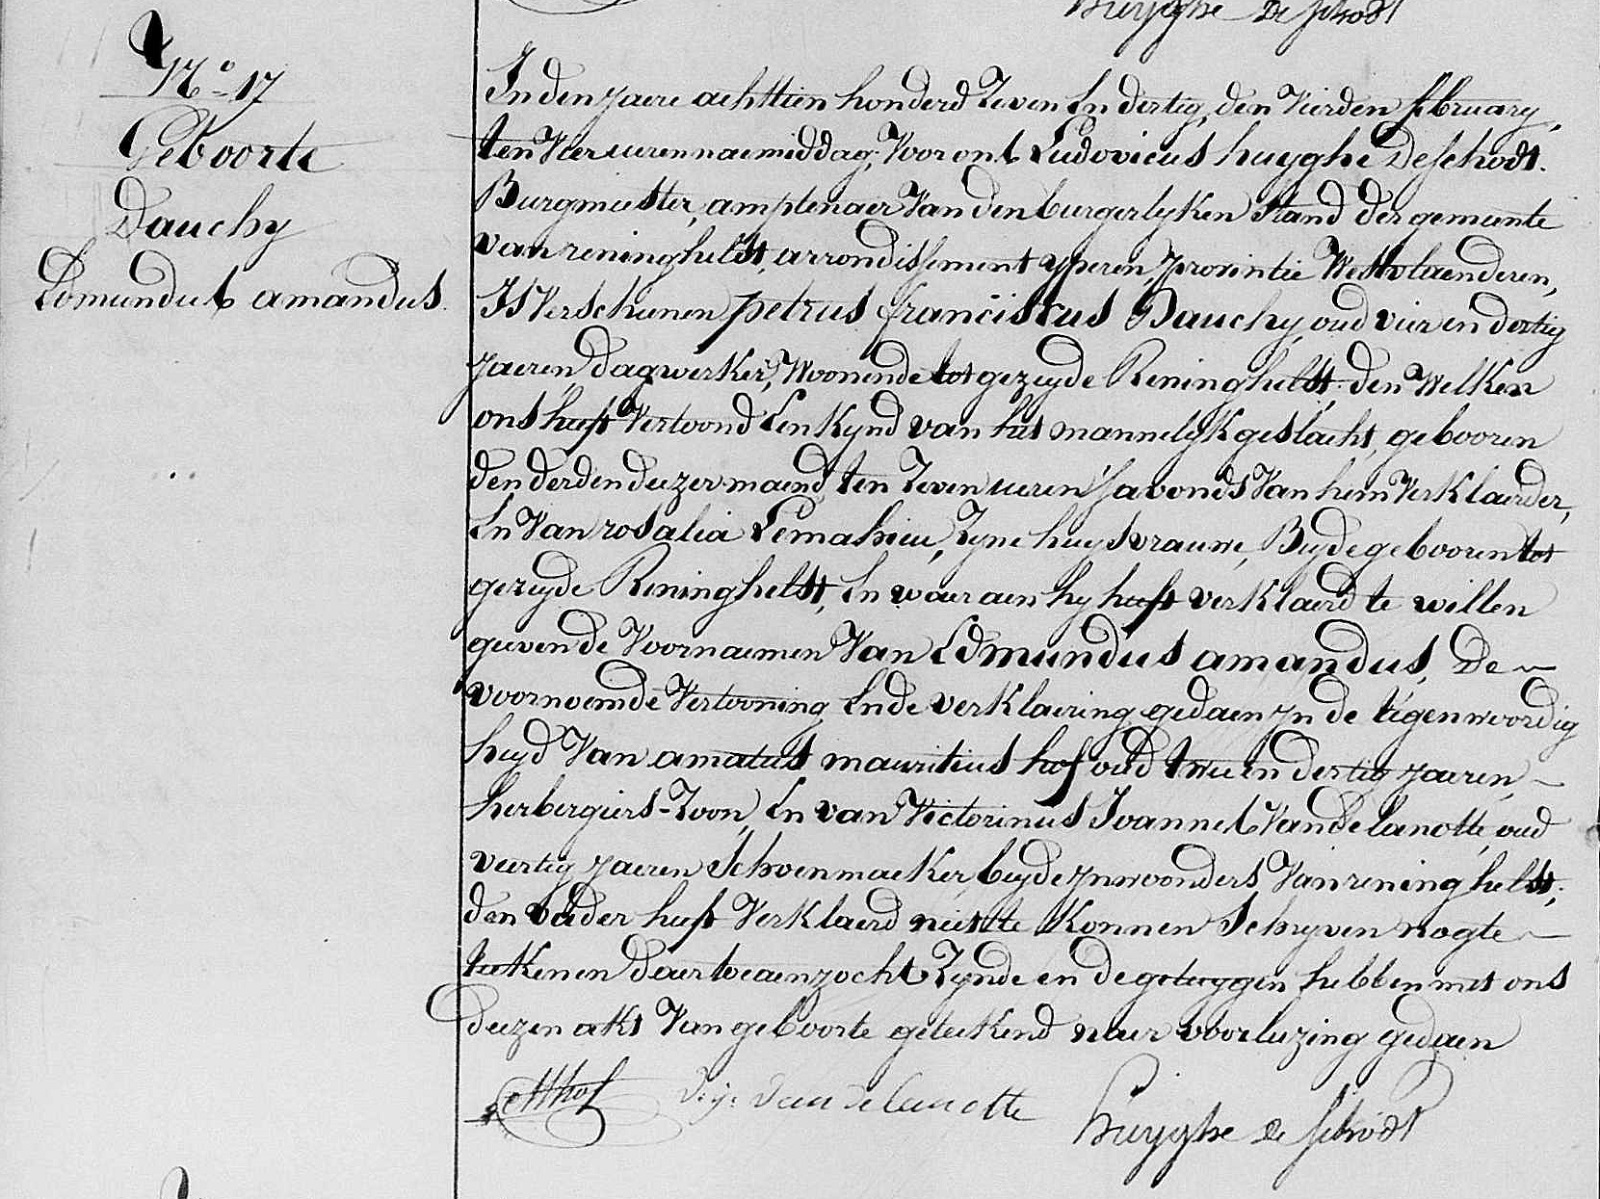 Huyghe De Schodt
No. 17
Geboorte
Dauchy
Edmundus amandus.
In den jaere achttien honderd Zeven En dertig, den Vierden february,
ten Vier uren naemiddag; Voor ons Ludovicus huyghe De Schodt.
Burgmeester, amptenaer Van den burgerlyken Stand der gemeente
van reninghelst, arrondissement yperen, provintie Westvlaenderen,
Is Verschenen petrus franciscus Dauchy, oud vier en dertig
jaeren, dagwerker, Woonende tot gezeyde Reninghelst, den Welken
ons heeft Vertoond Een Kynd van het mannelyk geslacht, gebooren
den derden deezer maend, ten Zeven uren 's avonds Van hem Verklaerder,
En Van rosalia Lemahieu, Zyne huysvrauwe, Beyde gebooren tot
gezeyde Reninghelst, En waer aen hy heeft verklaerd te willen
geeven de Voornaemen Van Edmundus amandus, De
voornoemde Vertooning Ende verklaering gedaen yn de tegenwoordig
heyd Van amatus mauritius hof oud twee en dertig jaeren,
herbergiers-Zoon, En van Victorinus Joannes Vandelanotte, oud
veertig jaeren Schoenmaeker, beyde ynwoonders Van reninghelst;
den vader heeft Verklaerd niet te Konnen Schryven nogte
teekenen daertoe aenzocht Zynde en de getuygen hebben met ons
deezen akt Van geboorte geteekend naer voorleezing gedaen
AMhof V. J. Vandelanotte Huyghe De Schodt